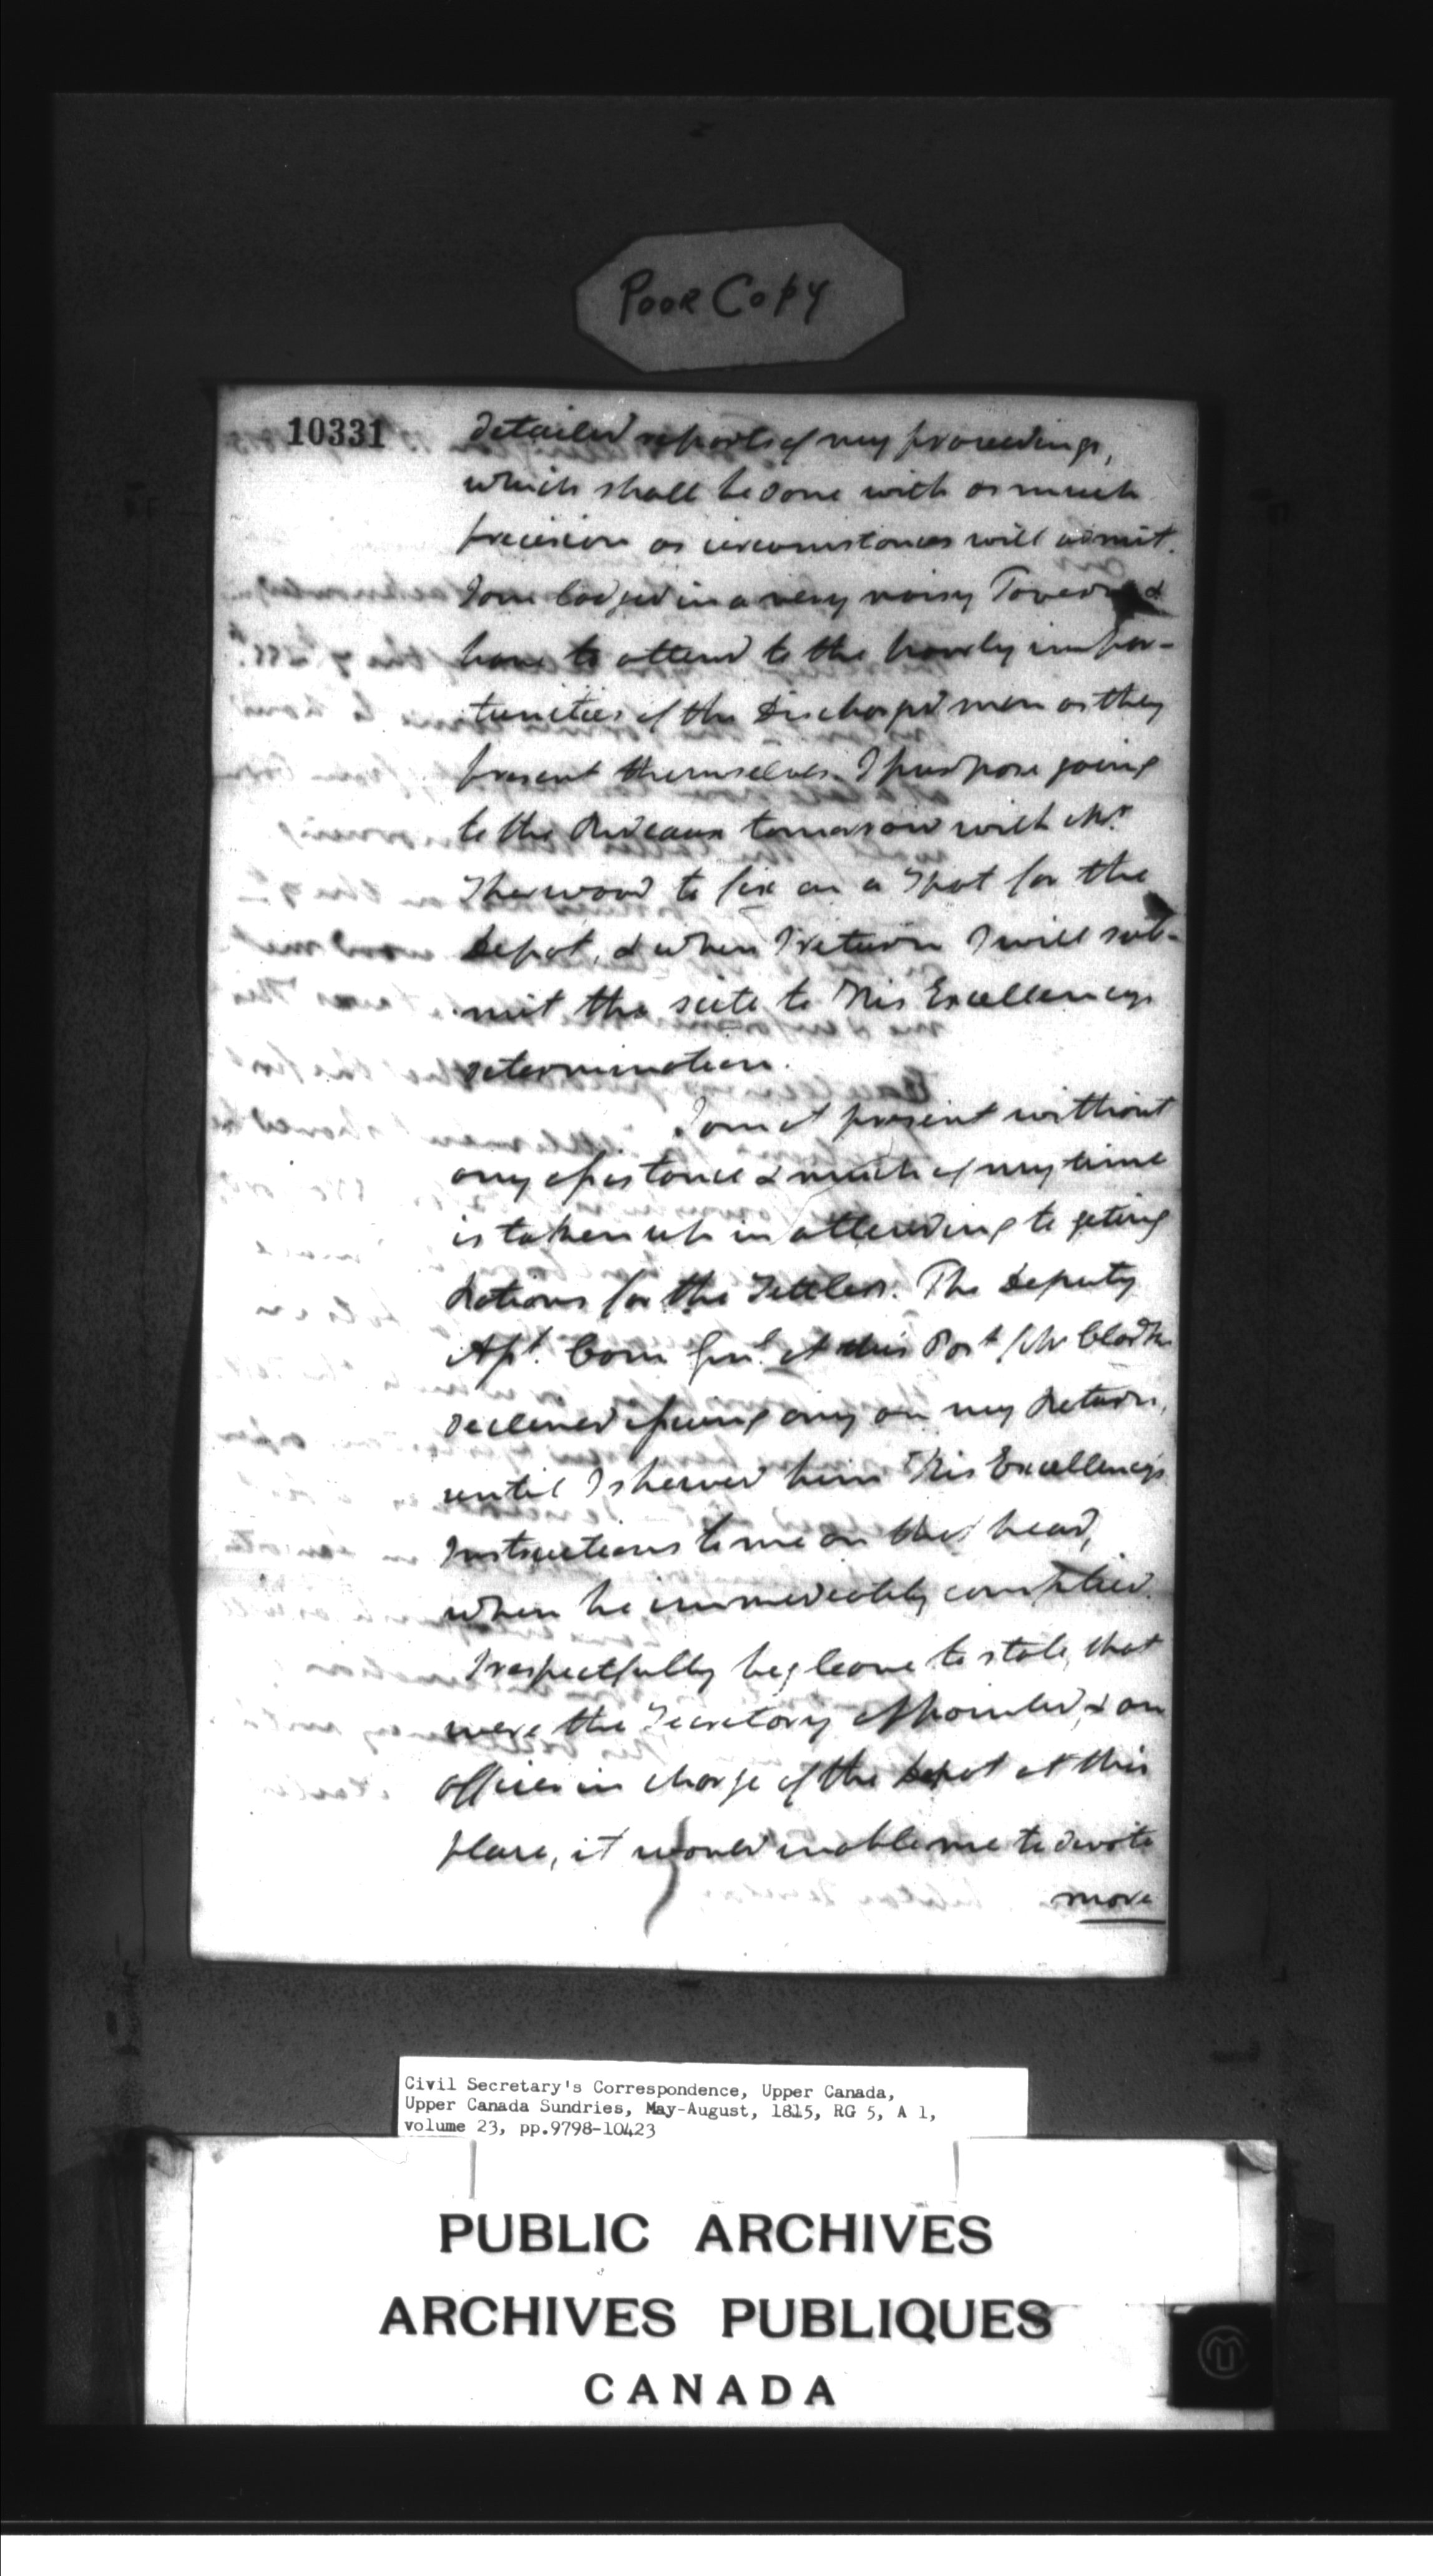 POOR COPY
10331
detailed reports of my proceedings,
which shall be done with as much
precision as circumstances will admit.
I am lodged in a very noisy Tavern &
have to attend to the hourly impor-
tunities of the Discharged men as they
present themselves. I purpose going
to the Rideaux tomorrow with Mr
Sherwood to fix on a Spot for the
Depot, & when I return I will sub-
mit the scite to His Excellencys
determination.
I am at present without
any assistance & much of my time
is taken up in attending to geting
Rations for the Settlers. The Deputy
Asst. Com Genl. at this Post (Mr Clarke
declined issuing any on my Return,
until I shewed him His Excellencys
Instructions to me on that head,
when he immediately complied.
I respectfully beg leave to state, that
were the Secretary appointed, & an
officer in charge of the Depot at this
place, it would enable me to devote
more
Civil Secretary's Correspondence, Upper Canada,
Upper Canada Sundries, May-August, 1815, RG 5, A 1,
volume 23, pp.9798-10423
PUBLIC ARCHIVES
ARCHIVES PUBLIQUES
CANADA